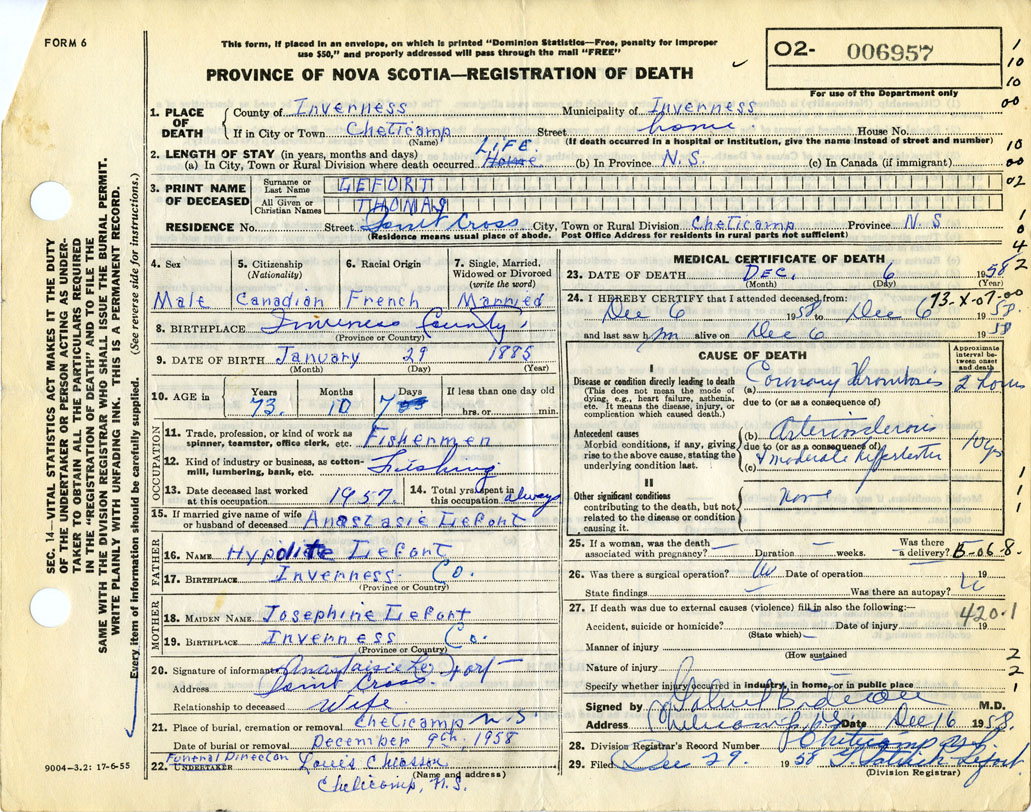 FORM 6
This form, if placed in an envelope, on which is printed "Dominion Statistics—Free, penalty for improper
use $50," and properly addressed will pass through the mail "FREE"
PROVINCE OF NOVA SCOTIA—REGISTRATION OF DEATH
O2- 006957
For use of the Department only
1. PLACE OF DEATH
County of Inverness Municipality of Inverness
If in City or Town Cheticamp Street home House No.
(Name) (If death occurred in a hospital or institution, give the name instead of street and number)
2. LENGTH OF STAY (in years, months and days) LIFE
(a) In City, Town or Rural Division where death occurred Home (b) In Province N.S. (c) In Canada (if immigrant)
3. PRINT NAME OF DECEASED
Surname or Last Name LEFORT
All Given or Christian Names THOMAS
RESIDENCE No. Street Point Cross City, Town or Rural Division Cheticamp Province N.S
(Residence means usual place of abode. Post Office Address for residents in rural parts not sufficient)
4. Sex 5. Citizenship (Nationality) 6. Racial Origin 7. Single, Married, Widowed or Divorced (write the word)
Male Canadian French Married
8. BIRTHPLACE Inverness County
(Province or Country)
9. DATE OF BIRTH January 29 1885
(Month) (Day) (Year)
10. AGE in Years 73 Months 10 Days 7 If less than one day old hrs. or min.
OCCUPATION
11. Trade, profession, or kind of work as spinner, teamster, office clerk, etc. Fishermen
12. Kind of industry or business, as cotton-mill, lumbering, bank, etc. Fishing
13. Date deceased last worked at this occupation 1957 14. Total yrs. spent in this occupation always
15. If married give name of wife or husband of deceased Anastasie Lefort
FATHER
16. NAME Hypolite Lefort
17. BIRTHPLACE Inverness Co.
(Province or Country)
MOTHER
18. MAIDEN NAME Josephine Lefort
19. BIRTHPLACE Inverness Co.
(Province or Country)
20. Signature of informant
Address Point Cross
Relationship to deceased Wife
21. Place of burial, cremation or removal Cheticamp N.S.
Date of burial or removal December 9th, 1958
Funeral Director
22. UNDERTAKER Louis Chiasson
(Name and address)
Cheticamp, N.S.
9004—3.2: 17-6-55
SEC. 14—VITAL STATISTICS ACT MAKES IT THE DUTY
OF THE UNDERTAKER OR PERSON ACTING AS UNDER-
TAKER TO OBTAIN ALL THE PARTICULARS REQUIRED
IN THE "REGISTRATION OF DEATH" AND TO FILE THE
SAME WITH THE DIVISION REGISTRAR WHO SHALL ISSUE THE BURIAL PERMIT.
WRITE PLAINLY WITH UNFADING INK. THIS IS A PERMANENT RECORD.
Every item of information should be carefully supplied. (See reverse side for instructions.)
MEDICAL CERTIFICATE OF DEATH
23. DATE OF DEATH DEC. 6 1958
(Month) (Day) (Year)
73-X-07-00
24. I HEREBY CERTIFY that I attended deceased from:
Dec 6 1958 to Dec 6 1958
and last saw m alive on Dec 6 1958
CAUSE OF DEATH
Approximate interval between onset and death
I
Disease or condition directly leading to death
(This does not mean the mode of dying, e.g., heart failure, asthenia, etc. It means the disease, injury, or complication which caused death.)
(a) Coronary thrombosis 2 hours
due to (or as a consequence of)
Antecedent causes
Morbid conditions, if any, giving rise to the above cause, stating the underlying condition last.
(b) 10 yrs
due to (or as a consequence of)
(c) & moderate
II
Other significant conditions
contributing to the death, but not related to the disease or condition causing it. None
25. If a woman, was the death associated with pregnancy? Duration weeks. Was there a delivery?
5-06-8
26. Was there a surgical operation? Date of operation 19
State findings Was there an autopsy?
27. If death was due to external causes (violence) fill in also the following:—
420.1
Accident, suicide or homicide? Date of injury 19
(State which)
Manner of injury
(How sustained
Nature of injury
Specify whether injury occurred in industry, in home, or in public place
Signed by M.D.
Address Cheticamp, N.S. Date Dec 16 1958
28. Division Registrar's Record Number Cheticamp
29. Filed Dec 29 1958 Lefort
(Division Registrar)
1
10
10
00
10
00
02
1
0
4
2
1
1
1
2
2
1